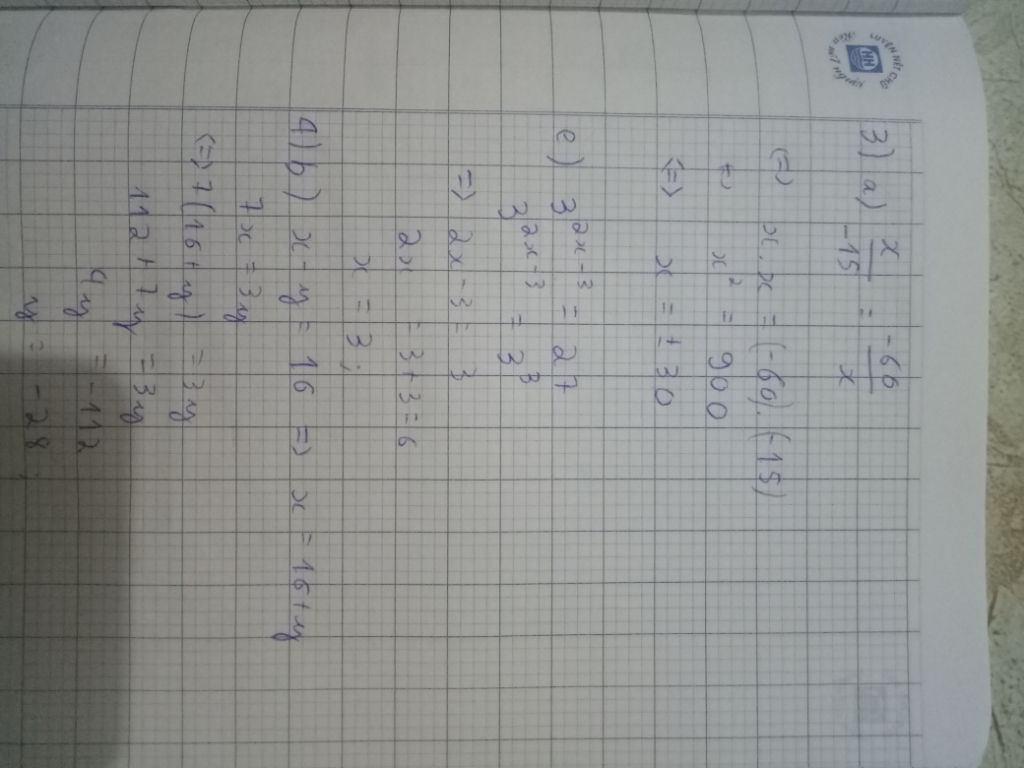 3) a) x/-15 = -60/x
(=) x.x = (-60).(-15)
(=) x² = 900
<=> x = ±30
e) 3^{2x-3} = 27
3^{2x-3} = 3^3
=) 2x-3 = 3
2x = 3+3=6
x = 3;
4) b) x-y = 16 =) x = 16+y
7x = 3y
<=> 7(16+y) = 3y
112 + 7y = 3y
4y = -112
y = -28;